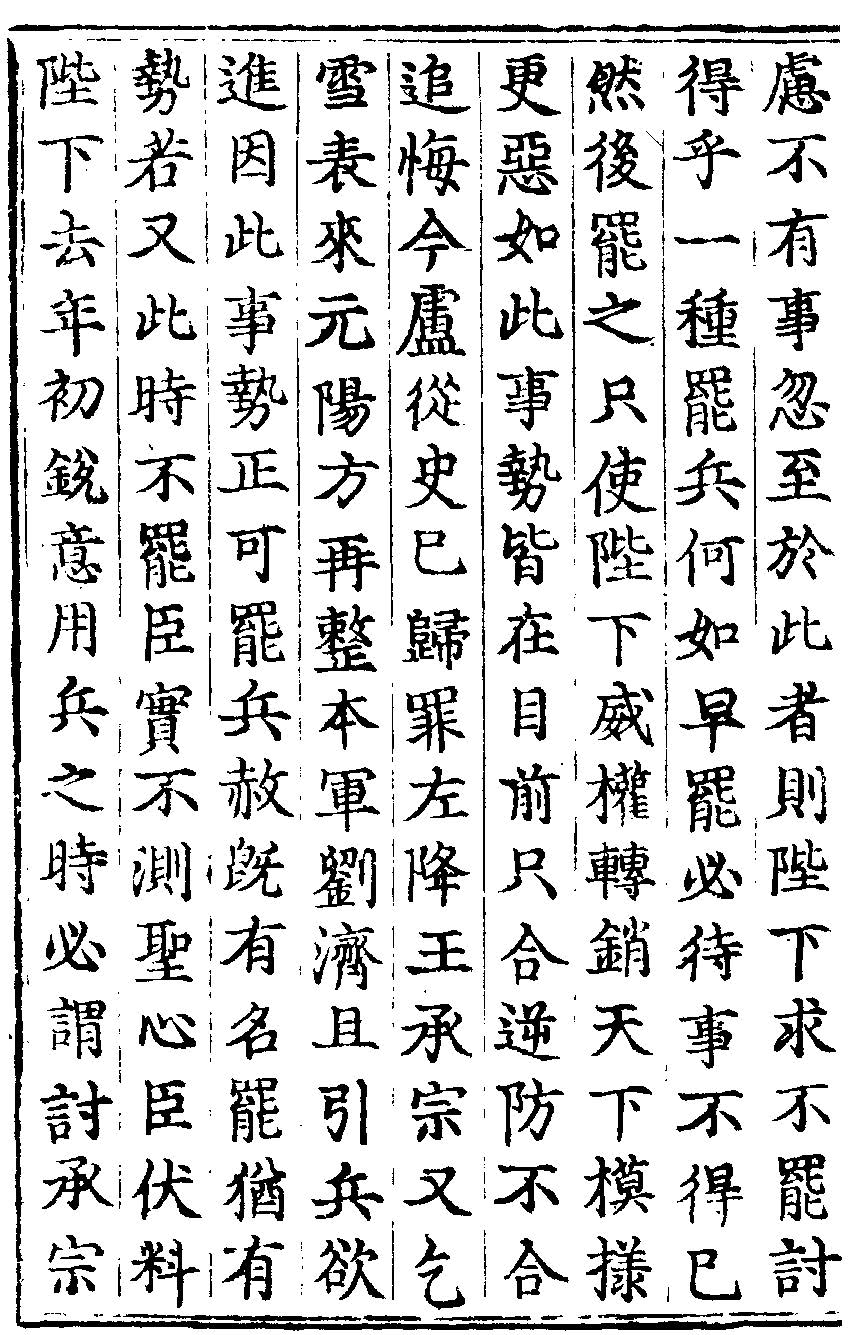 慮不有事忽至於此者則陛下求不罷討
得乎一種罷兵何如早罷必待事不得已
然後罷之只使陛下威權轉銷天下模㨾
更惡如此事勢皆在目前只合逆防不合
追悔今盧從史已歸罪左降王承宗又乞
雪表來元陽方再整本軍劉濟且引兵欲
進因此事勢正可罷兵赦既有名罷猶有
勢若又此時不罷臣實不測聖心臣伏料
陛下去年初銳意用兵之時必謂討承宗